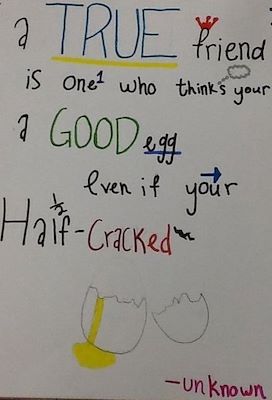 a TRUE friend
is one¹ who think's your
a GOOD egg
even if your
½
Half-Cracked
-unknown